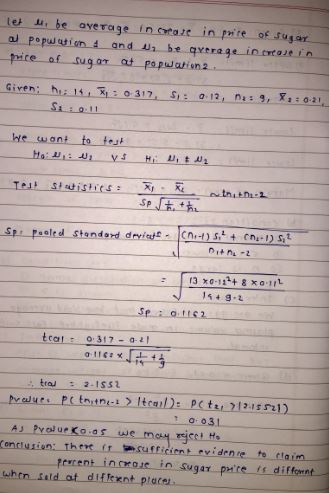 let μ₁ be average increase in price of sugar
at population 1 and μ₂ be average increase in
price of sugar at population 2.
Given: n₁: 14, x̄₁ = 0.317, S₁ = 0.12, n₂ = 9, x̄₂ = 0.21,
S₂ = 0.11
We want to test
H₀: μ₁ = μ₂ vs H₁: μ₁ ≠ μ₂
Test Statistics = (x̄₁ - x̄₂) / (Sp √(1/n₁ + 1/n₂)) ~ tn₁+n₂-2
Sp: pooled standard deviation = √(((n₁-1) S₁² + (n₂-1) S₂²) / (n₁+n₂-2))
= √((13 x 0.12² + 8 x 0.11²) / (14 + 9 - 2))
Sp = 0.1162
tcal = (0.317 - 0.21) / (0.1162 x √(1/14 + 1/9))
∴ tcal = 2.1552
Pvalue: P(tn₁+n₂-2 > |tcal|) = P(t₂₁ > |2.1552|)
= 0.031
As Pvalue < 0.05 we may reject H₀
Conclusion: There is sufficient evidence to claim
percent increase in sugar price is different
when sold at different places.